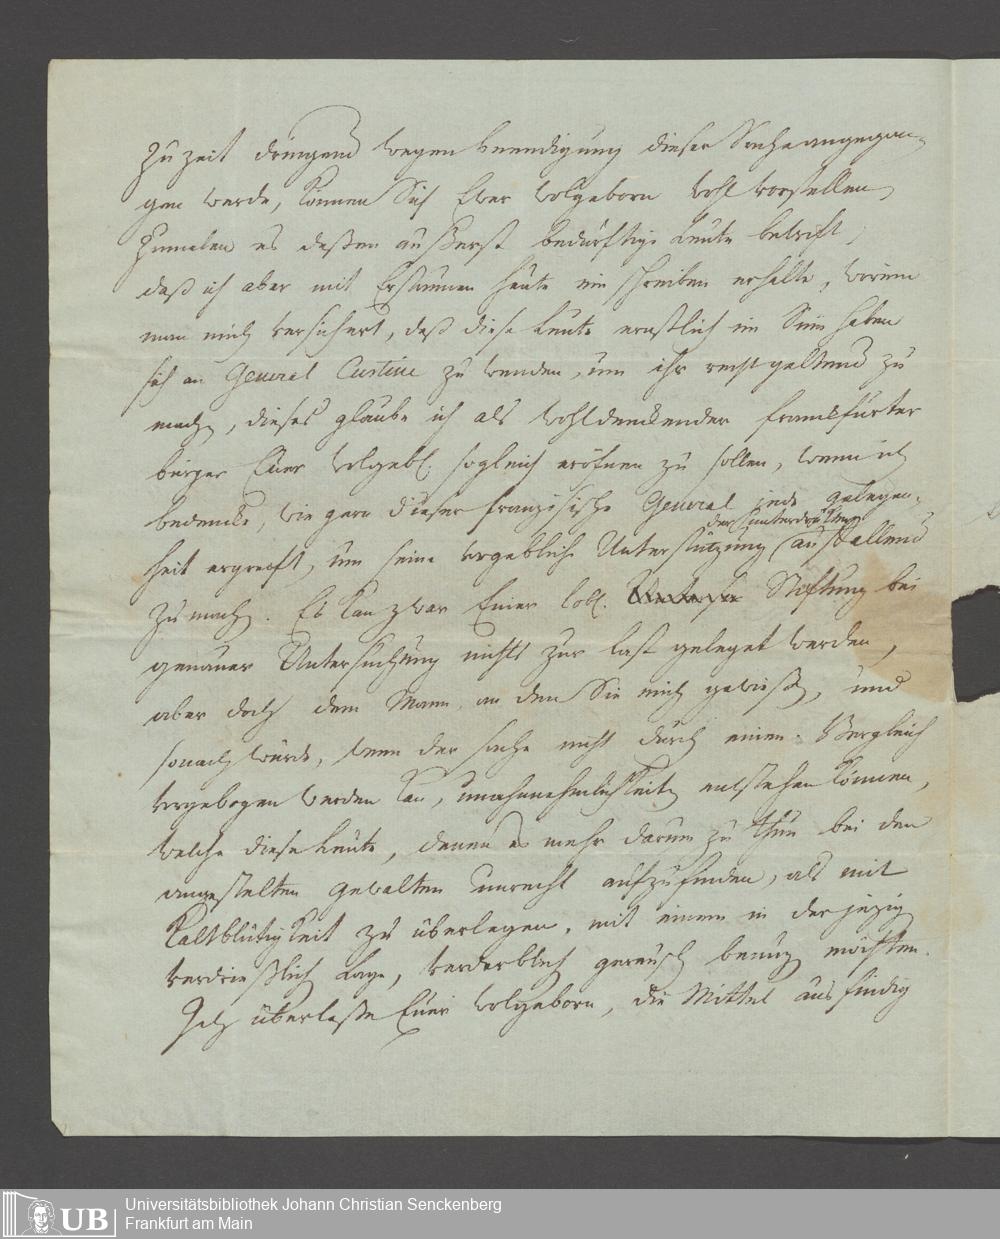 zu zeit dringend wegen beendigung dieser Sache angegan-
gen werde, können Sich Euer Wolgeborn wohl vorstellen,
zumalen es dessen äusserst bedürftige Leute betrift,
daß ich aber mit Erstaunen heute ein schreiben erhalte, worinn
man mich versichert, daß diese Leute ernstlich im Sinn haben
sich an General Custine zu wenden, um ihr recht geltend zu
mach, dieses glaube ich als wohldenckender franckfurter
bürger Euer Wolgeb. sogleich eröfnen zu sollen, wenn ich
bedencke, wie gern dieser französische General jede gelegen-
heit ergreift, um seine vorgebliche Unterstüzung der unterdrückten auffallend
zu mach. Es kan zwar Einer löbl. Stiftung bei
genauer Untersuchung nichts zur last geleget werden,
aber doch dem Mann, an den Sie mich gewiesen, und
sonach würde, wenn der sache nicht durch einen Vergleich
vorgebogen werden kan, unahnnehmlichkeit entstehen können,
welche diese Leute, denen es mehr darum zu thun bei den
angestelten gewalten unrecht aufzufinden, als mit
Kaltblütigkeit zu überlegen, mit einem in der jezig
verdrießlich Lage, verderblich geräusch benuz möchten.
Ich überlasse Euer Wolgeborn, die Mittel ausfindig
UB
Universitätsbibliothek Johann Christian Senckenberg
Frankfurt am Main